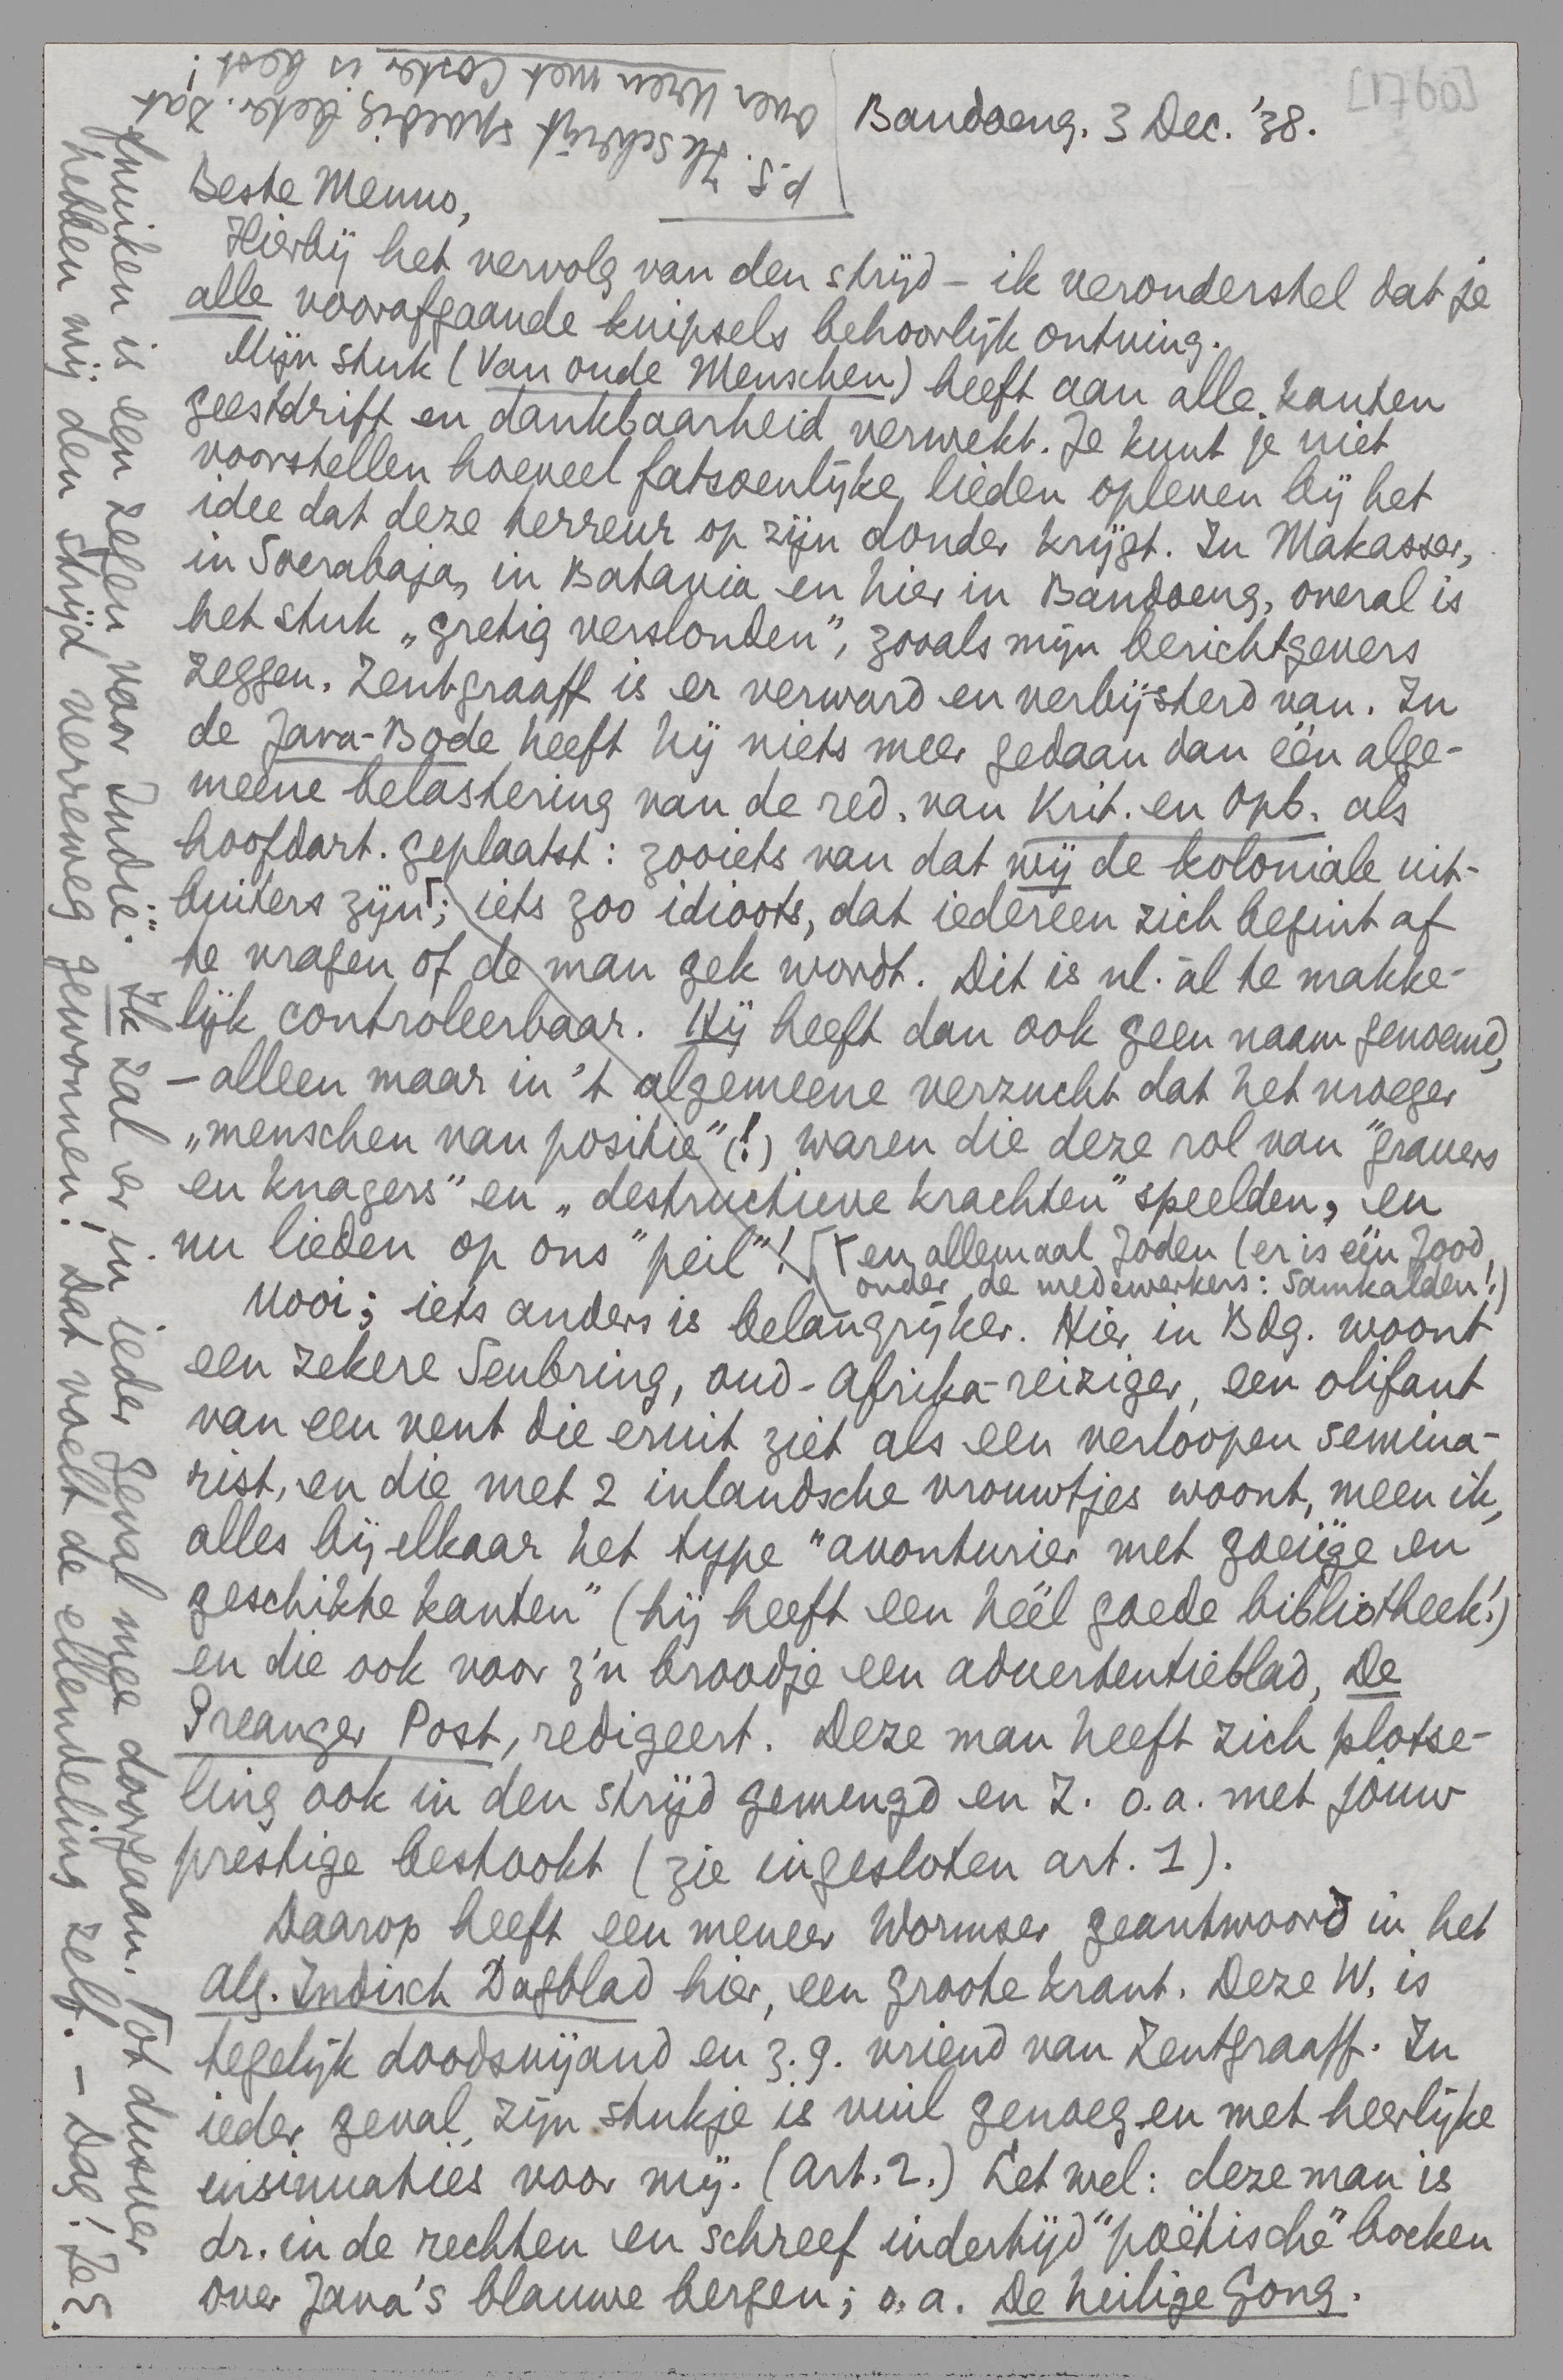 [1760]
Bandoeng. 3 Dec. '38.
Beste Menno,
Hierbij het vervolg van den strijd – ik veronderstel dat je
alle voorafgaande knipsels behoorlijk ontving.
Mijn stuk (Van oude Menschen) heeft aan alle kanten
geestdrift en dankbaarheid verwekt. Je kunt je niet
voorstellen hoeveel fatsoenlijke lieden opleven bij het
idee dat deze terreur op zijn donder krijgt. In Makasser,
in Soerabaja, in Batavia en hier in Bandoeng, overal is
het stuk „gretig verslonden", zooals mijn berichtgevers
zeggen. Zentgraaff is er verward en verbijsterd van. In
de Java-Bode heeft hij niets meer gedaan dan één alge-
meene belastering van de red. van Krit. en Opb. als
hoofdart. geplaatst: zooiets van dat wij de koloniale uit-
buiters zijn⌈; iets zoo idioots, dat iedereen zich begint af
te vragen of de man gek wordt. Dit is nl. ál te makke-
lijk controleerbaar. Hij heeft dan ook geen naam genoemd,
– alleen maar in 't algemeene verzucht dat het vroeger
„menschen van positie" (!) waren die deze rol van "gravers
en knagers" en „destructieve krachten" speelden, en
nu lieden op ons "peil"!
⌈en allemaal Joden (er is één Jood
onder de medewerkers: Samkalden!)
Mooi; iets anders is belangrijker. Hier in Bdg. woont
een zekere Senbring, oud-Afrika-reiziger, een olifant
van een vent die eruit ziet als een verloopen semina-
rist, en die met 2 inlandsche vrouwtjes woont, meen ik,
alles bij elkaar het type "avonturier met goeiïge en
geschikte kanten" (hij heeft een héél goede bibliotheek!)
en die ook voor z'n broodje een advertentieblad, De
Preanger Post, redigeert. Deze man heeft zich plotse-
ling ook in den strijd gemengd en Z. o.a. met jòuw
prestige bestookt (zie ingesloten art. 1).
Daarop heeft een meneer Wormser geantwoord in het
Alg. Indisch Dagblad hier, een groote krant. Deze W. is
tegelijk doodsvijand en z.g. vriend van Zentgraaff. In
ieder geval, zijn stukje is vuil genoeg en met heerlijke
insinuaties voor mij. (Art. 2.) Let wel: deze man is
dr. in de rechten en schreef indertijd "poëtische" boeken
over Java's blauwe bergen; o.a. De heilige Gong.
fnuiken is een zegen voor Indië". Ik zal er in ieder geval mee doorgaan. Tot dusver
hebben wij den strijd verreweg gewonnen! Dat voelt de ellendeling zelf. – Dag! Je E.
P.S. Ik schrijf spoedig beter. Dat
over Uren met Coster is best!